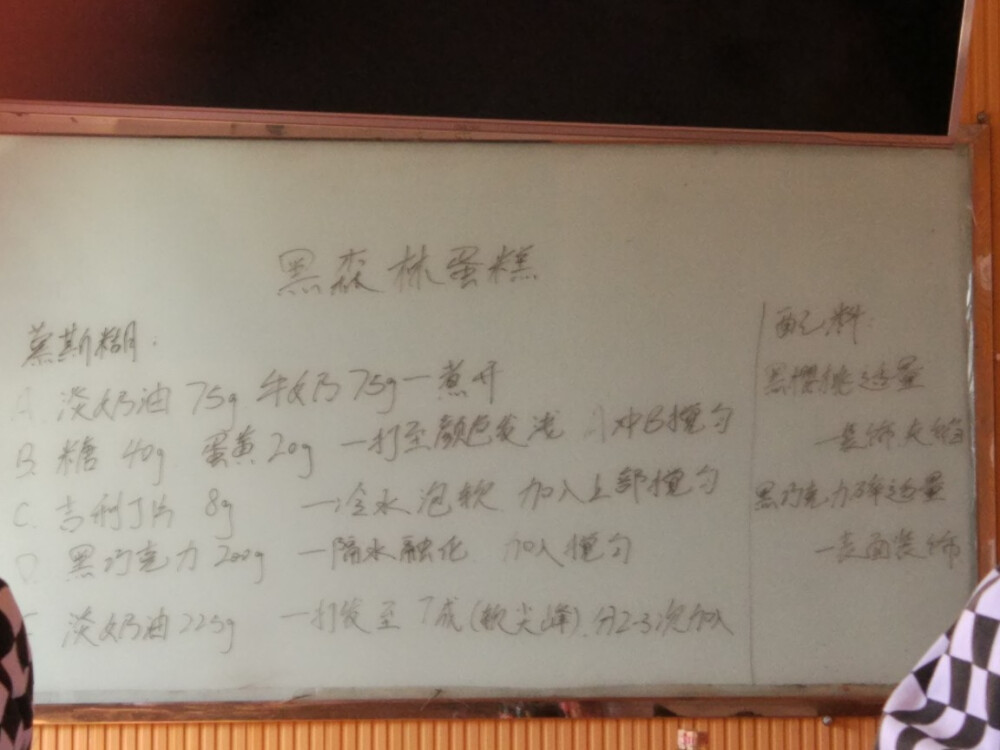 黑森林蛋糕
慕斯糊:
A. 淡奶油 75g 牛奶 75g 一煮开
B. 糖 40g 蛋黄 20g 一打至颜色发浅 冲B搅匀
C. 吉利丁片 8g 一冷水泡软 加入上部搅匀
D. 黑巧克力 200g 一隔水融化 加入搅匀
淡奶油 225g 一打发至7成(软尖峰).分2-3次加入
配料:
黑樱桃适量
黑巧克力碎适量
一表面装饰